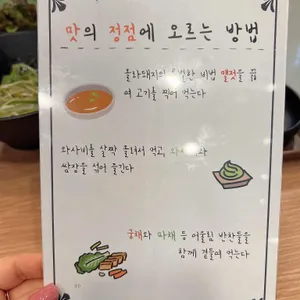 맛의 정점에 오르는 방법
올라돼지의 비법 멜젓을 끓
여 고기를 찍어 먹는다
와사비를 살짝 올려서 먹고,
쌈장을 섞어 즐긴다
궁채와 파채 등 어울림 반찬들을
함께 곁들여 먹는다